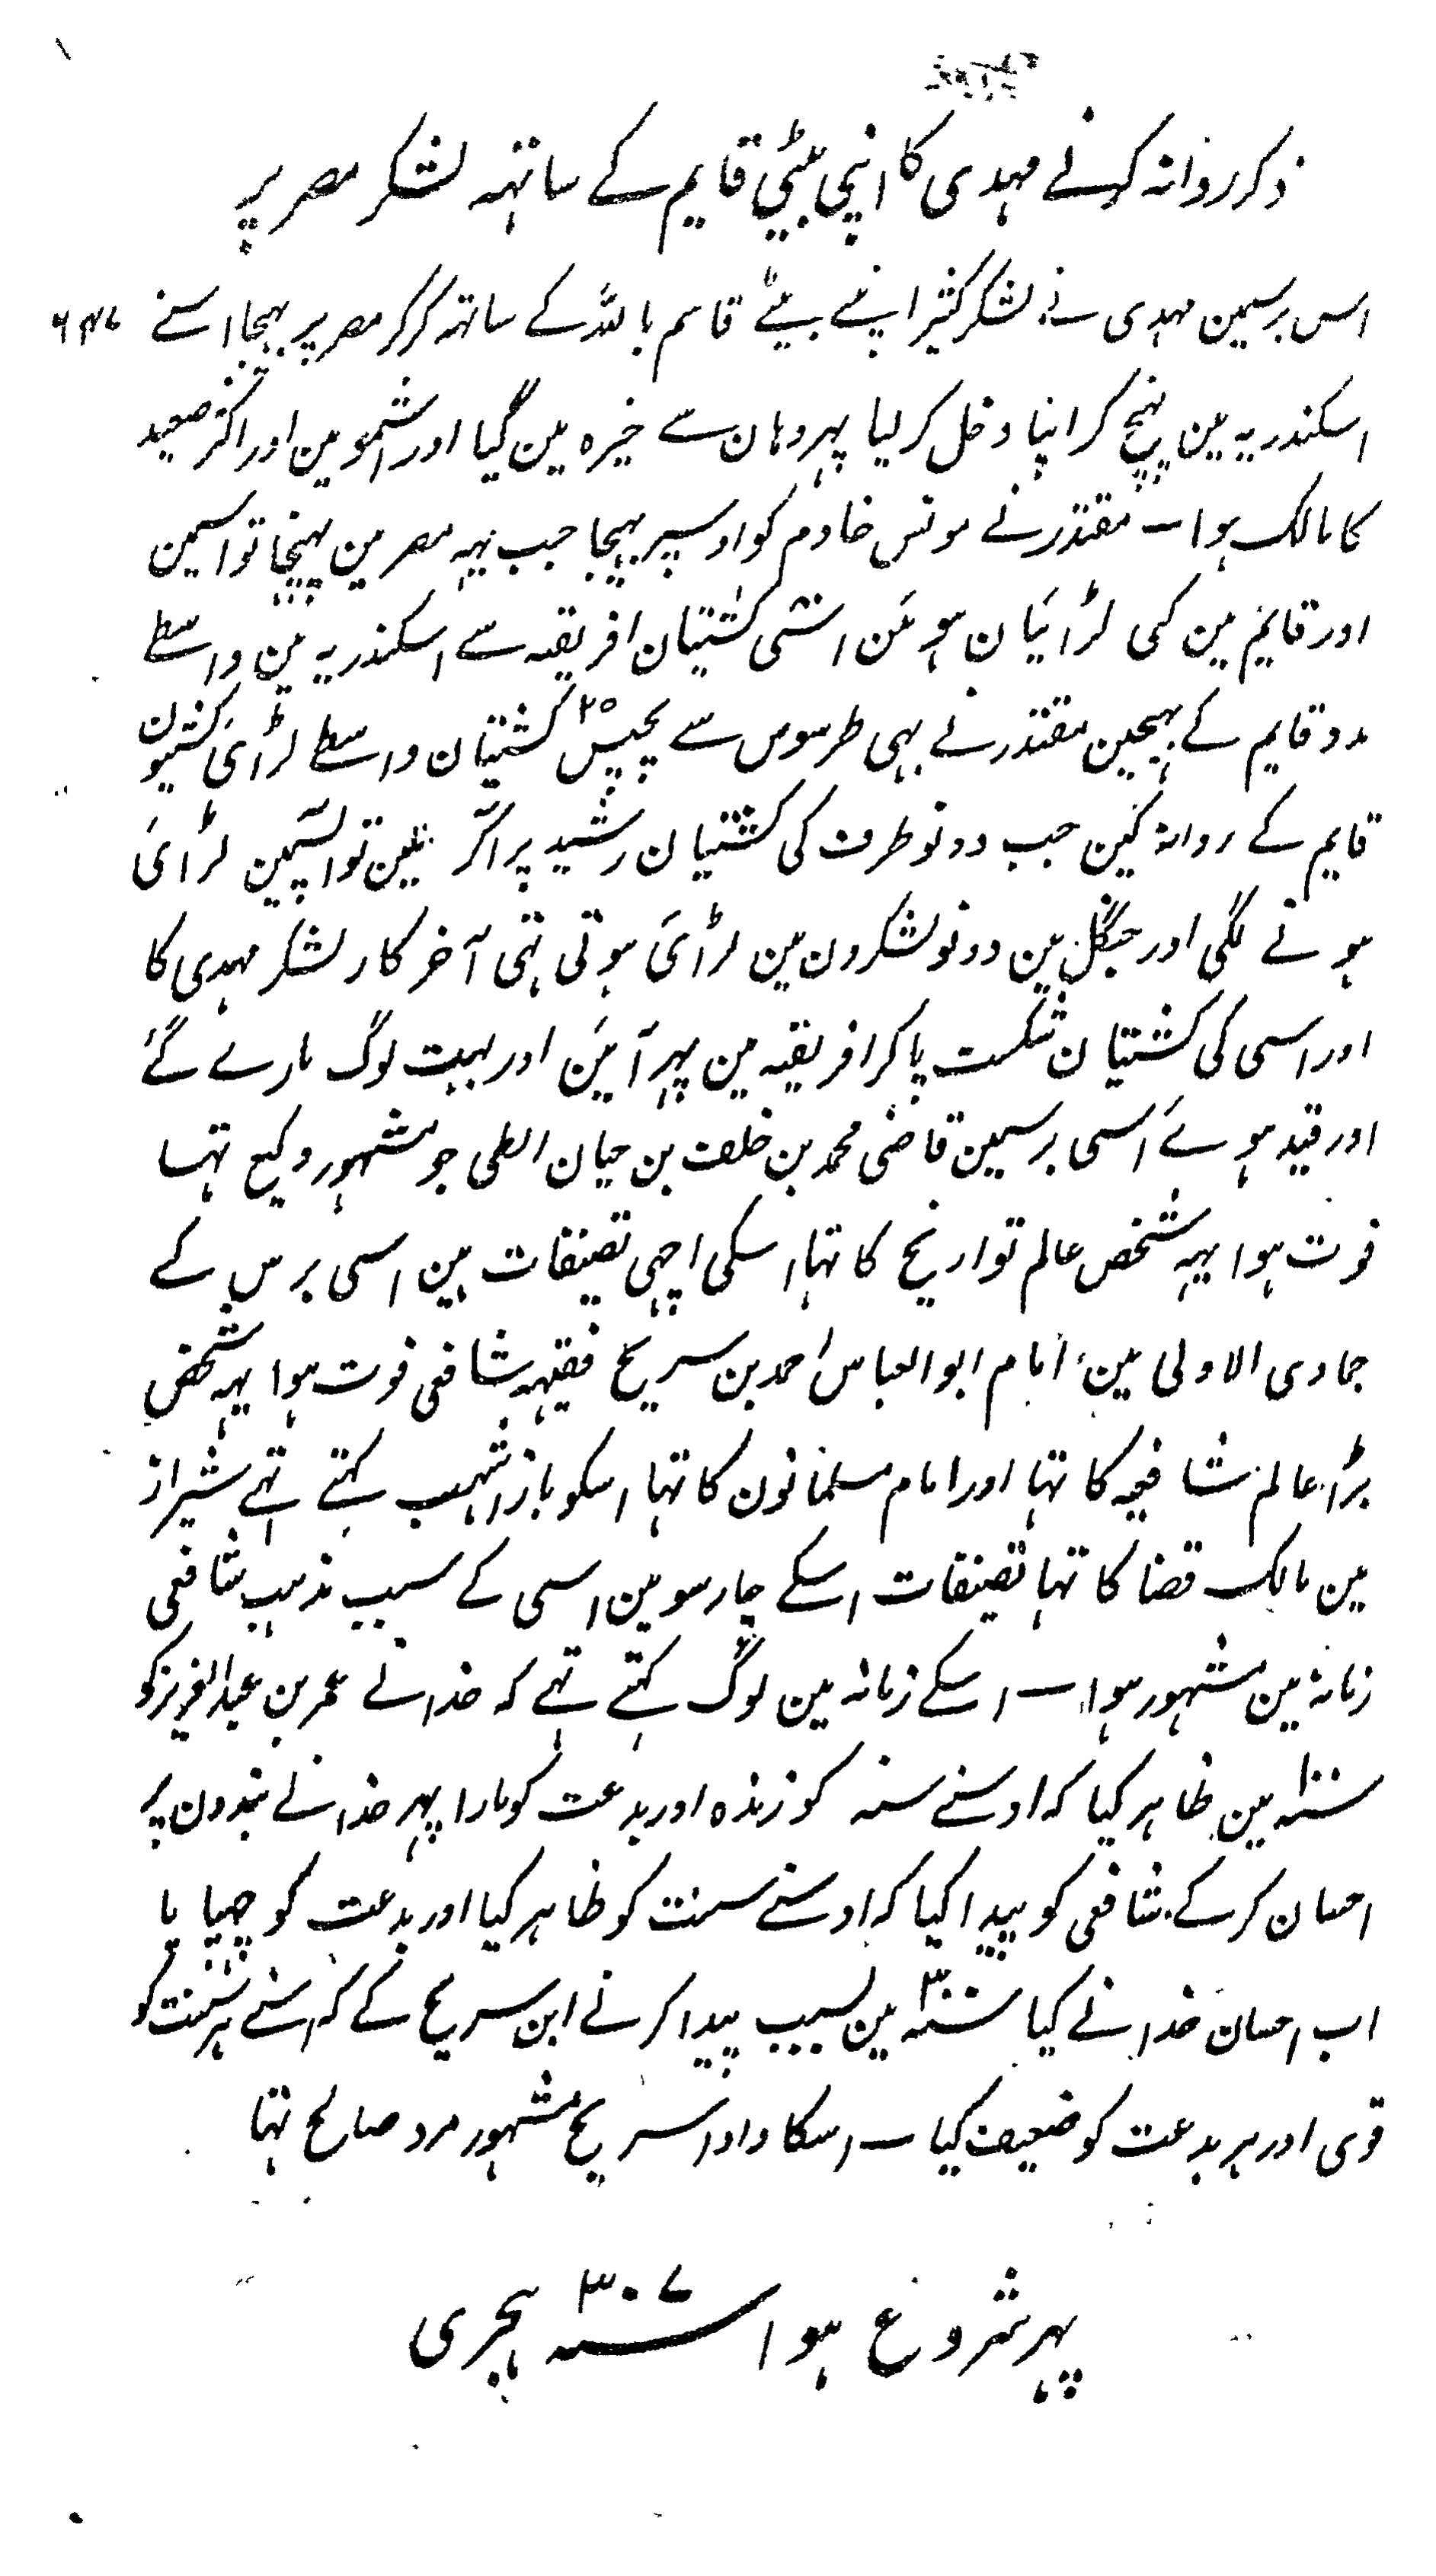 ذکر روانہ کرنے مہدی کا اپنی بیٹی قایم کے ساتہہ لشکر مصر پر
اس برسمین مہدی نے لشکر کثیر اپنے بیٹے قاسم باللہ کے ساتہہ کرکر مصر پر بہیجا اسنے
اسکندریہ مین پہنچ کر اپنا دخل کر لیا پہر وہان سے خیرہ مین گیا اور اشمومین اور اکثر صعید
کا مالک ہوا — مقتدر نے مونس خادم کو اوسپر بہیجا جب یہہ مصر مین پہنچا تو اسمین
اور قایم مین کی لڑائیان ہوئین اسّی کشتیان افریقہ سے اسکندریہ مین واسطے
مدد قایم کے بہیجین مقتدر نے بہی طرسوس سے پچیس ۲۵ کشتیان واسطے لڑائی کشتیون
قایم کے روانہ کین جب دونو طرف کی کشتیان رشید پر آکر ملین تو آپسمین لڑائی
ہونے لگی اور جنگل مین دونو لشکرون مین لڑائی ہوتی تہی آخر کار لشکر مہدی کا
اور اسی کی کشتیان شکست پا کر افریقہ مین پہر آئین اور بہت لوگ مارے گئے
اور قید ہوئے اسی برسمین قاضی محمد بن خلف بن حیان الطی جو مشہور وکیع تہا
فوت ہوا یہہ شخص عالم تواریخ کا تہا اسکی اچہی تصنیفات ہین اسی برس کے
جمادی الاولی مین امام ابو العباس احمد بن سریح فقیہہ شافعی فوت ہوا یہہ شخص
بڑا عالم شافعیہ کا تہا اور امام مسلمانون کا تہا اسکو باز اشہب کہتے تہے شیراز
مین مالک قضا کا تہا تصنیفات اسکے چار سو ہین اسی کے سبب مذہب شافعی
زمانہ مین مشہور ہوا — اسکے زمانہ مین لوگ کہتے تہے کہ خدا نے عمر بن عبد العزیز کو
سنہ ۱۰۰ مین ظاہر کیا کہ اوسنے سنہ کو زندہ اور بدعت کو مارا پہر خدا نے بندون پر
احسان کر کے شافعی کو پیدا کیا کہ اوسنے سنت کو ظاہر کیا اور بدعت کو چہپایا
اب احسان خدا نے کیا سنہ ۳۰۰ مین بسبب پیدا کرنے ابن سریح کے کہ اسنے ہر سنت کو
قوی اور ہر بدعت کو ضعیف کیا — اسکا دادا سریح مشہور مرد صالح تہا
پہر شروع ہوا سنہ ۳۰۷ ہجری